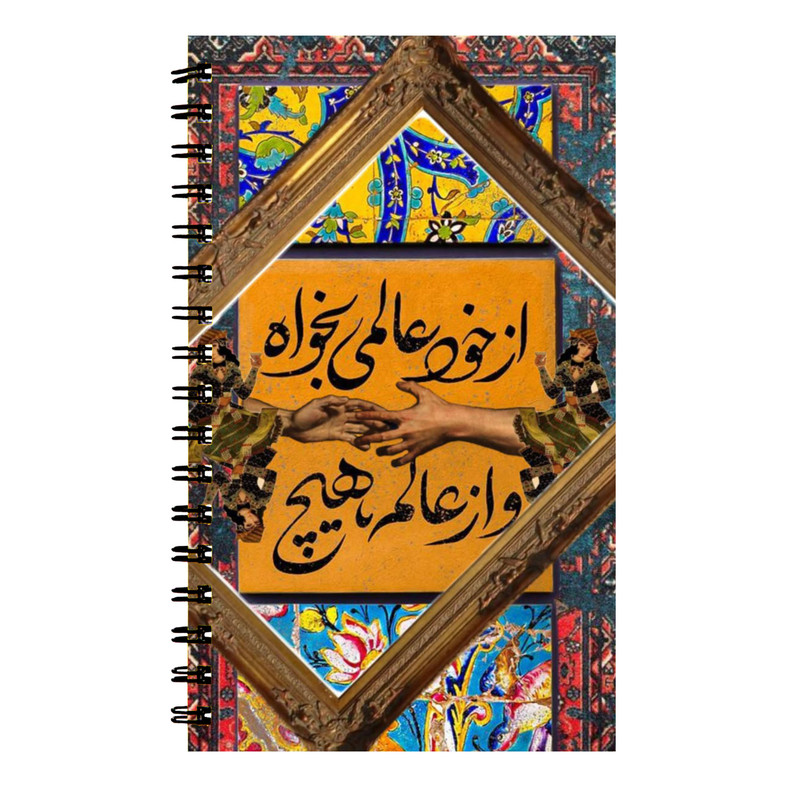 از خود عالمی بخواه
و از عالم ها هیچ